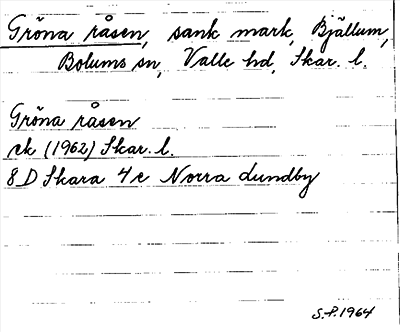 Gröna råsen, sank mark, Bjällum,
Bolums sn, Valle hd, Skar. l.
Gröna råsen
ek (1962) Skar. l.
8 D Skara 4 e Norra Lundby
S.P. 1964